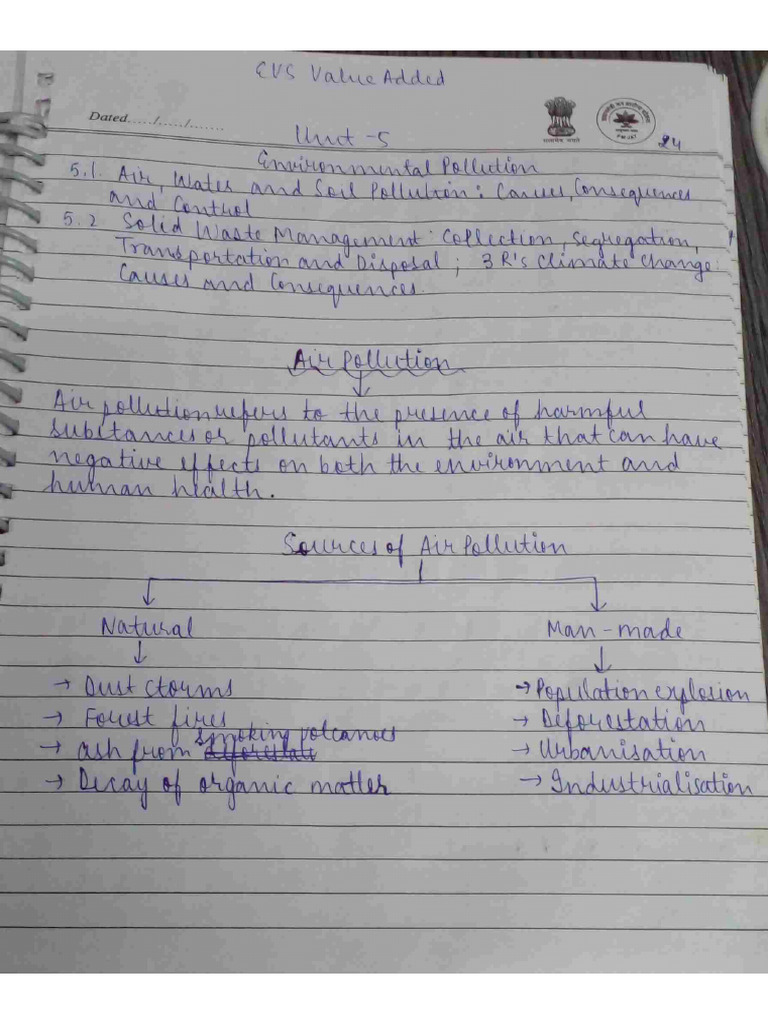 EVS Value Added
Dated...../...../.......
Unit -5
24
Environmental Pollution
5.1. Air, Water and Soil Pollution: Causes, Consequences
and Control
5.2 Solid Waste Management: Collection, Segregation,
Transportation and Disposal; 3 R's Climate Change:
Causes and Consequences.
Air Pollution
Air pollution refers to the presence of harmful
substances or pollutants in the air that can have
negative effects on both the environment and
human health.
Sources of Air Pollution
Natural Man-made
→ Dust storms → Population explosion
→ Forest fires → Deforestation
→ ash from smoking volcanoes → Urbanisation
→ Decay of organic matter → Industrialisation